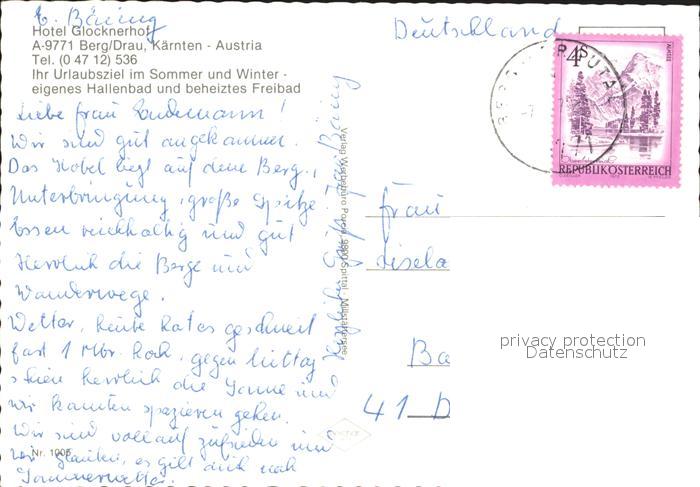 E. Bäing
Hotel Glocknerhof
A-9771 Berg/Drau, Kärnten - Austria
Tel. (0 47 12) 536
Ihr Urlaubsziel im Sommer und Winter -
eigenes Hallenbad und beheiztes Freibad
Deutschland
4
ALMSEE
REPUBLIK ÖSTERREICH
Liebe Frau
Wir sind gut angekommen.
Das Hotel liegt auf dem Berg,
Unterbringung, große Spitze
Essen reichhaltig und gut
Herrlich die Berge und
Wanderwege.
Wetter, heute hat es geschneit
fast 1 Mtr. hoch, gegen Mittag
schien herrlich die Sonne und
wir konnten spazieren gehen.
Wir sind vollauf zufrieden und
wir glauben, es gibt doch noch
Sommerwetter.
Nr. 1006
Verlag Werbebüro 9800 Spittal - Millstättersee
Frau
Gisela
Ba
41 D
privacy protection
Datenschutz